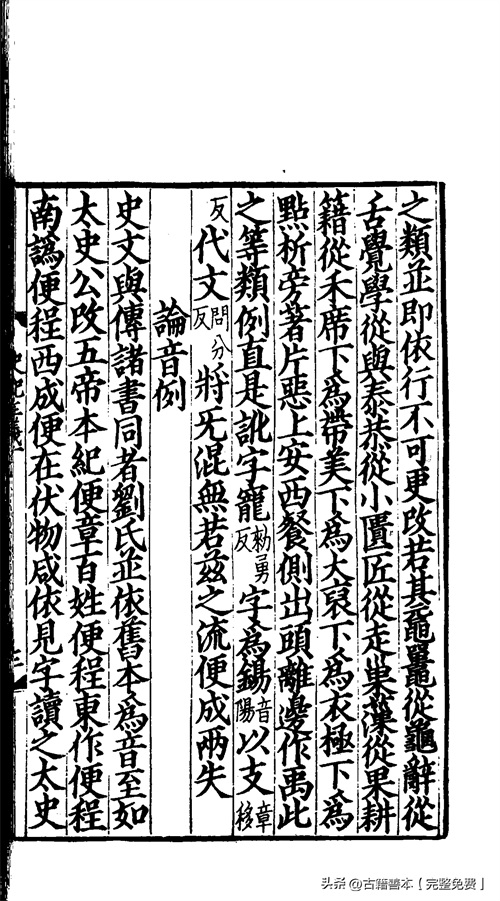 之類並即依行不可更改若其黿鼉從龜辭從
舌覺學從與泰恭從小匱匠從走巢藻從果耕
籍從禾席下爲帶美下爲大裒下爲衣極下爲
點析旁著片惡上安西餐側出頭離邊作禹此
之等類例直是訛字寵勑勇反字爲錫音陽以支章移
反代文問分反將旡混無若茲之流便成兩失
論音例
史文與傳諸書同者劉氏並依舊本爲音至如
太史公改五帝本紀便章百姓便程東作便程
南譌便程西成便在伏物咸依見字讀之太史
头条@古籍善本【完整免费】